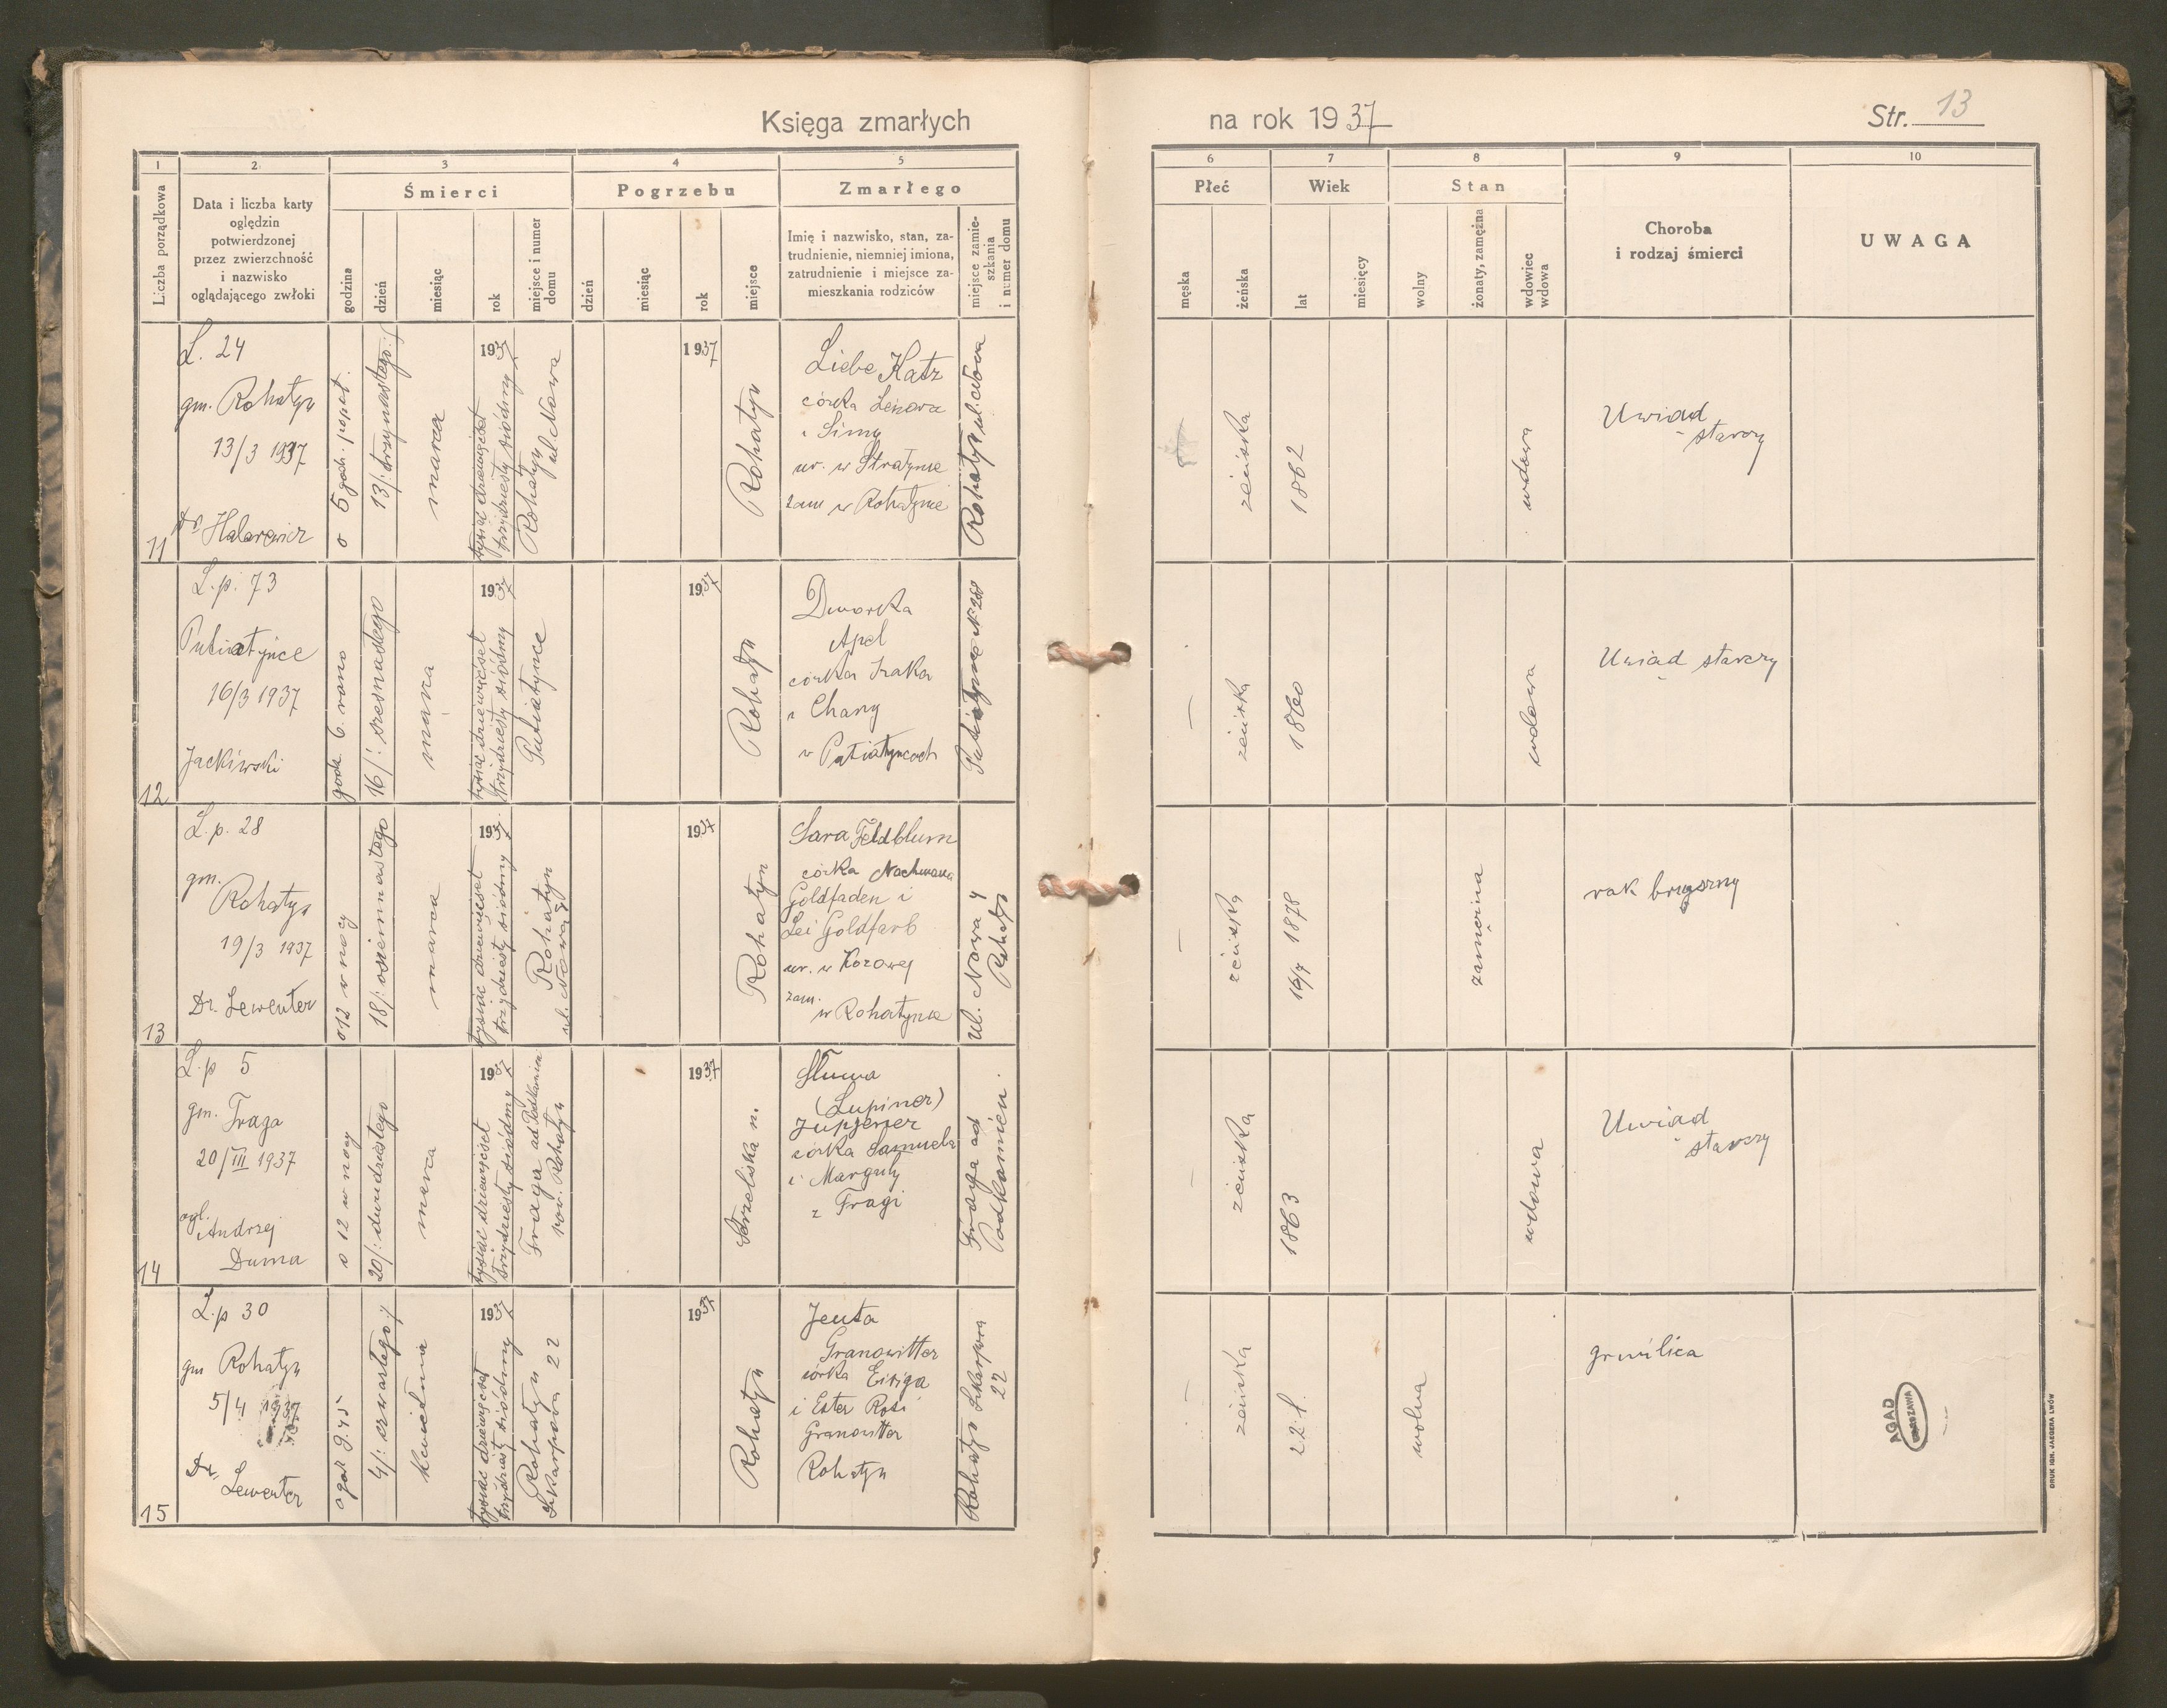 Księga zmarłych
na rok 1937
Str. 13
1
2
3
4
5
6
7
8
9
10
Liczba porządkowa
Data i liczba karty
oględzin
potwierdzonej
przez zwierzchność
i nazwisko
oglądającego zwłoki
Śmierci
godzina
dzień
miesiąc
rok
miejsce i numer
domu
Pogrzebu
dzień
miesiąc
rok
miejsce
Zmarłego
Imię i nazwisko, stan, za-
trudnienie, niemniej imiona,
zatrudnienie i miejsce za-
mieszkania rodziców
miejsce zamie-
szkania
i numer domu
Płeć
męska
żeńska
Wiek
lat
miesięcy
Stan
wolny
żonaty, zamężna
wdowiec
wdowa
Choroba
i rodzaj śmierci
UWAGA
11
L. 24
gm. Rohatyn
13/3 1937
Dr Halarewicz
o 5 godz. popoł.
13/: trzynastego :/
marca
1937
tysiąc dziewięćset
trzydziesty siódmy
Rohatyn
ul. Nowa
1937
Rohatyn
Liebe Katz
córka
i Simy
ur. w Stratynie
zam w Rohatynie
Rohatyn ul. Nowa
żeńska
1862
wdowa
Uwiąd
starczy
12
L.p. 73
Putiatyńce
16/3 1937
Jackiwski
godz. 6. rano
16/: szesnastego
marca
1937
tysiąc dziewięćset
trzydziesty siódmy
Putiatyńce
1937
Rohatyn
Dworka
Apel
córka Izaka
i Chany
w Putiatyńcach
Putiatyńce N 258
—
żeńska
1860
wdowa
Uwiąd starczy
13
L.p. 28
gm.
Rohatyn
19/3 1937
Dr. Lewenter
o 12 w nocy
18/: osiemnastego
marca
1937
tysiąc dziewięćset
trzydziesty siódmy
Rohatyn
ul. Nowa
1937
Rohatyn
Sara Feldblum
córka Nachmana
Goldfaden i
Lei Goldfarb
ur. w Kozowej
zam.
w Rohatynie
ul. Nowa 4
Rohatyn
—
żeńska
16/7 1878
zamężna
rak brzuszny
14
L.p 5
gm. Fraga
20/III 1937
ogl.
Andrzej
Duma
o 12 w nocy
20/: dwudziestego
marca
1937
tysiąc dziewięćset
trzydziesty siódmy
Fraga ad Podkamień
pow. Rohatyn
1937
Strzeliska n.
Sluwa
(Lupiner)
Jupjener
córka Samuela
i Marguly
z Fragi
Fraga ad
Podkamień.
—
żeńska
1863
wdowa
Uwiąd
starczy
15
L.p 30
gm Rohatyn
5/4 1937
Dr.
Lewenter
o god. 9.45
4/: czwartego :/
kwietnia
1937
tysiąc dziewięćset
trzydziesty siódmy
Rohatyn
Szkarpowa 22
1937
Rohatyn
Jenta
Granowitter
córka Eisiga
i Ester Rosi
Granowitter
Rohatyn
Rohatyn Szkarpowa
22
—
żeńska
22 l.
wolna
gruźlica
AGAD
WARSZAWA
DRUK IGN. JAEGERA LWÓW